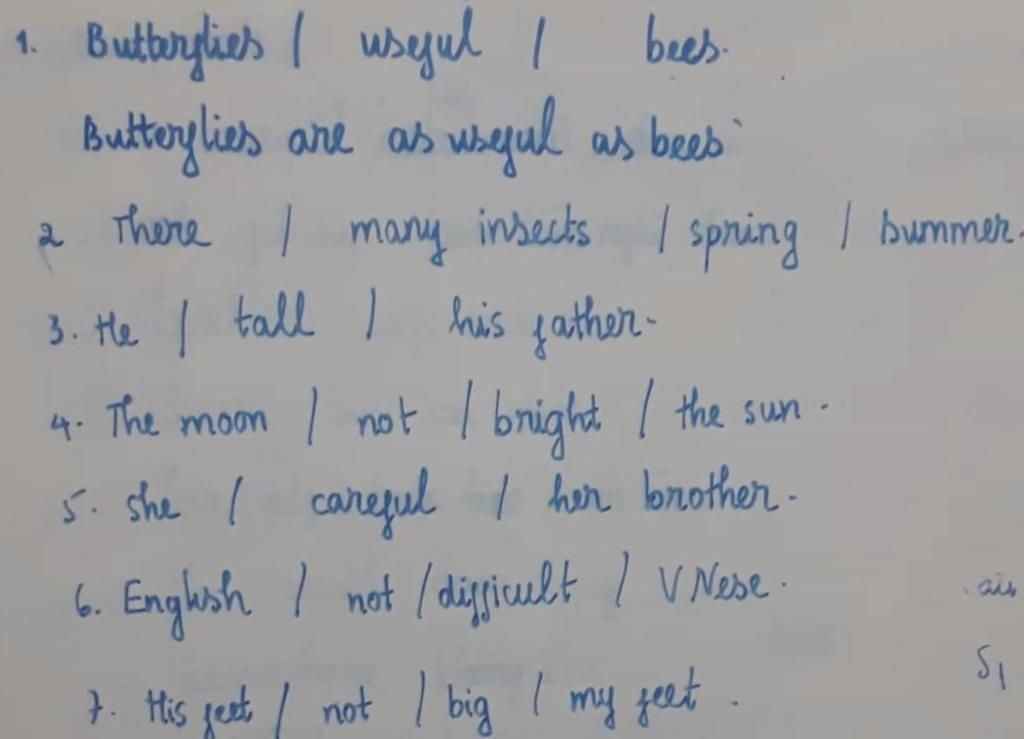 1. Butterflies / useful / bees.
Butterflies are as useful as bees
2 There / many insects / spring / summer.
3. He / tall / his father.
4. The moon / not / bright / the sun.
5. she / careful / her brother.
6. English / not / difficult / VNese.
S1
7. His feet / not / big / my feet.